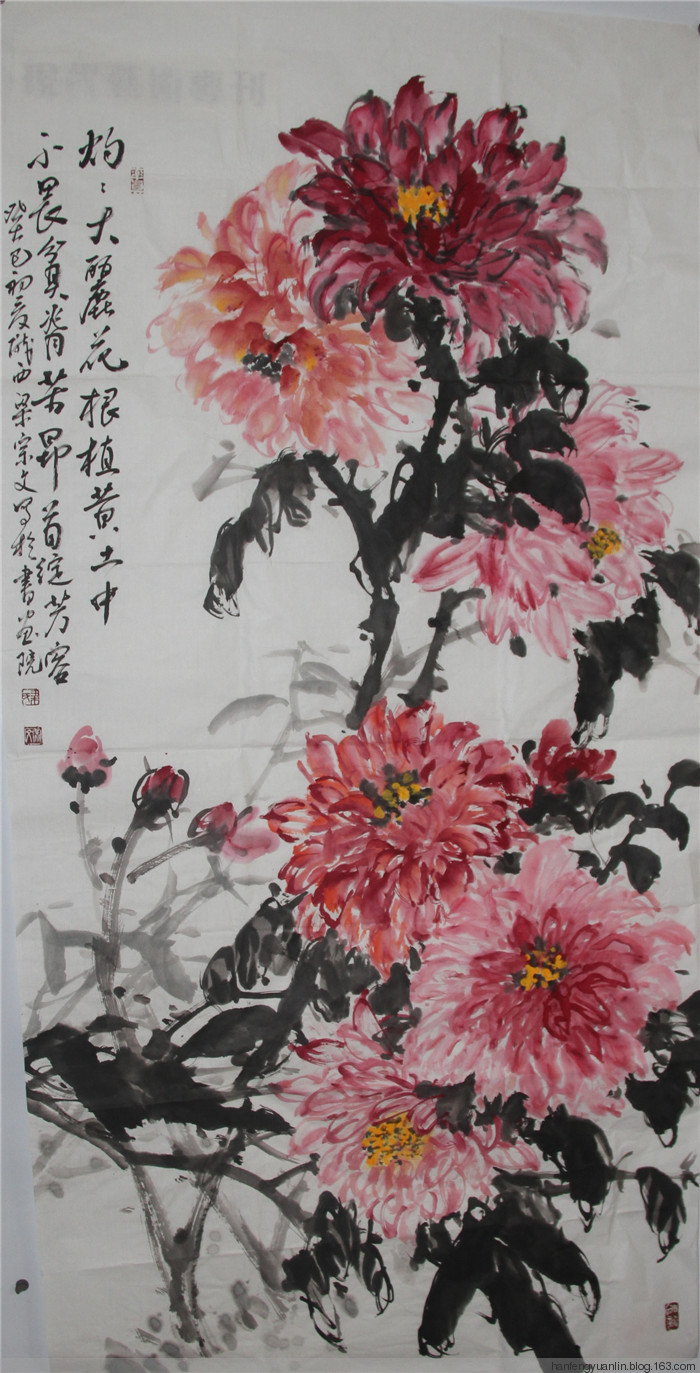 灼〻大麗花根植黄土中
不畏貧脊苦昂首绽芳容
癸巳初夏陇西梁宗文写於書画院
hanfengyuanlin.blog.163.com